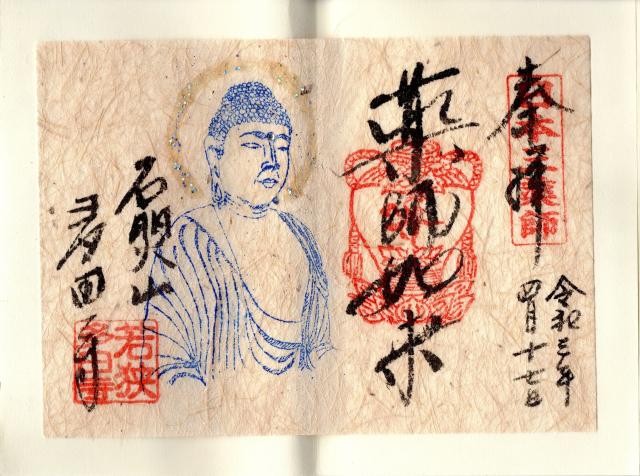 奉拝
日本三薬師
令和三年
四月十七日
薬師如来
石照山
多田寺
若狭
多田寺